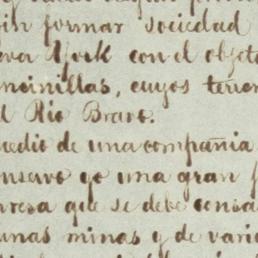 sin formar sociedad
eva York con el objeto
ncinillas, cuyos terren
l Rio Bravo.
medio de una compañia
nservo yo una gran p
presa que se debe consa
unas minas y de vario